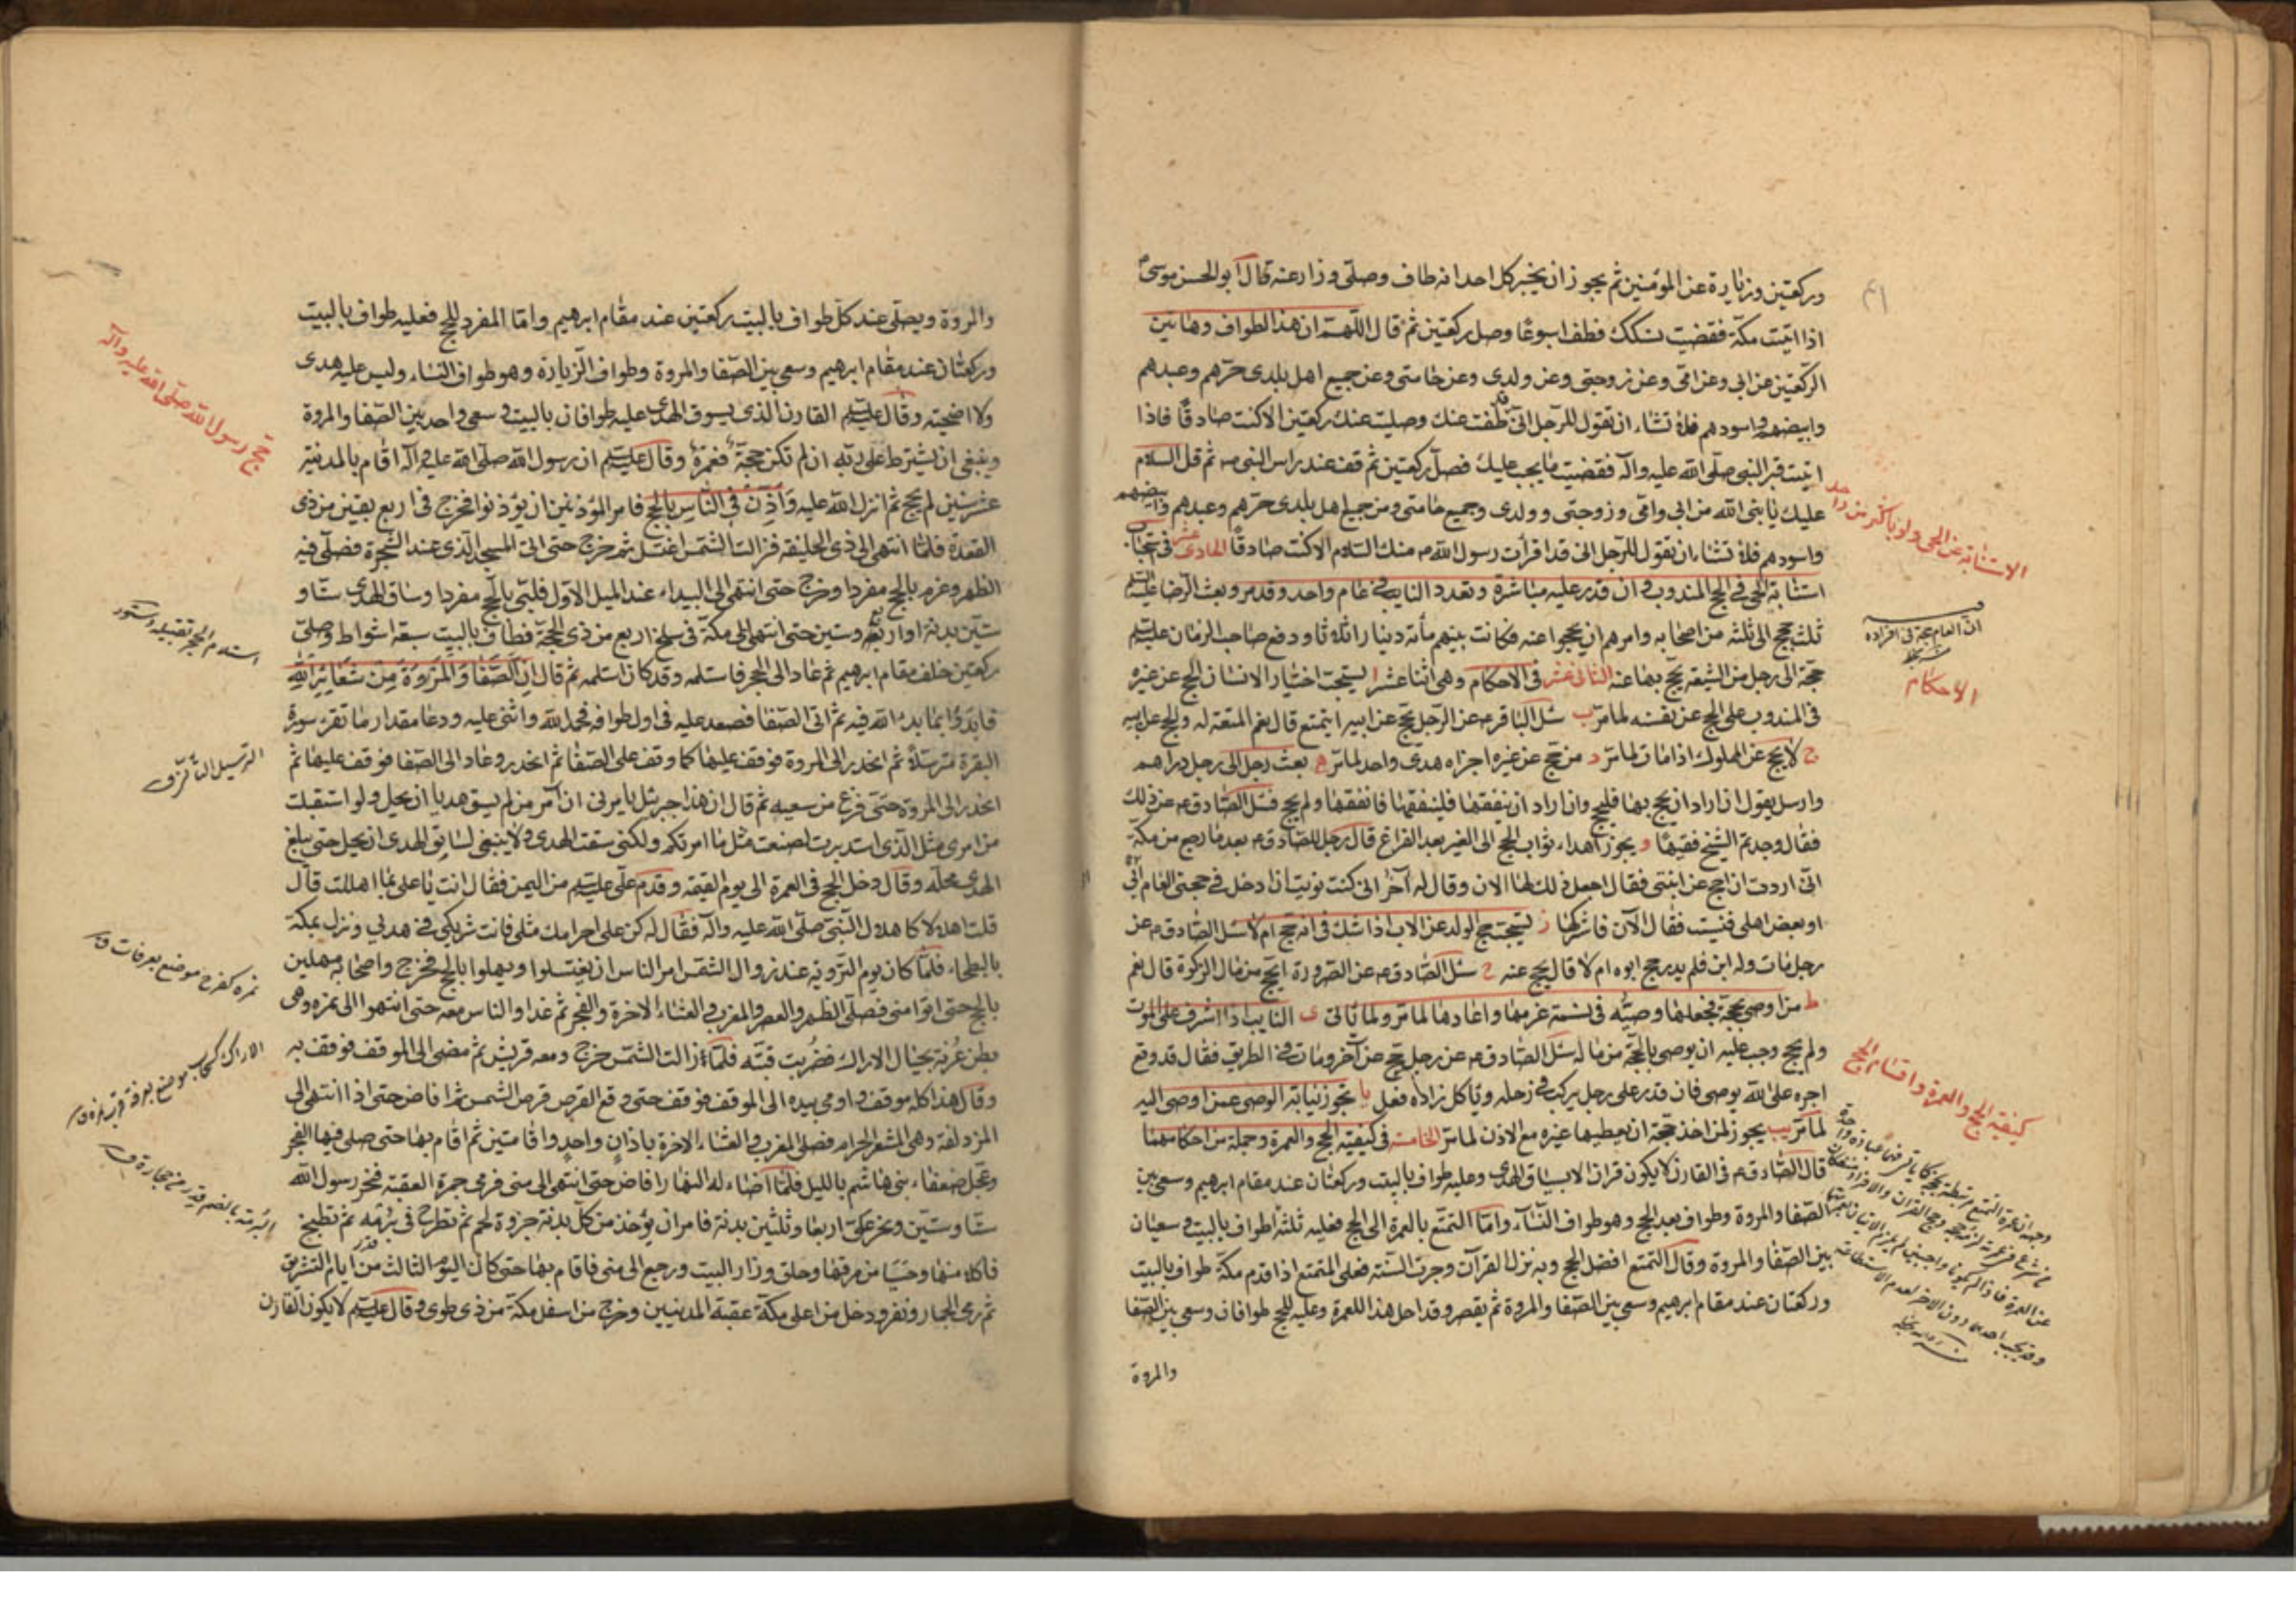 وركعتين وزيارة عن المؤمنين ثم يجوز ان يخبر كل احد انه طاف وصلى وزار عنه قال ابو الحسن موسى
اذا اتيت مكة فقضيت نسكك فطف اسبوعا وصل ركعتين ثم قال اللهم ان هذا الطواف وهاتين
الركعتين عن ابى وعن امى وعن زوجتى وعن ولدى وعن حامتى وعن جميع اهل بلدى حرهم وعبدهم
وابيضهم واسودهم فلا تشاء ان تقول للرجل انى قد طفت عنك وصليت عنك ركعتين الا كنت صادقا فاذا
اتيت قبر النبى صلى الله عليه وآله فقضيت ما يجب عليك فصل ركعتين ثم قف عند راس النبى ص ثم قل السلام
عليك يا نبى الله من ابى وامى وزوجتى وولدى وجميع حامتى ومن جميع اهل بلدى حرهم وعبدهم وابيضهم
واسودهم فلا تشاء ان تقول للرجل انى قد اقرأت رسول الله ص منك السلام الا كنت صادقا الحادى عشر فى
استنابة الحى فى الحج المندوب وان قدر عليه مباشرة وتعدد النايب فى عام واحد وقد مر وبعث الرضا عليه السلم
ثلث حجج الى ثلثة من اصحابه وامرهم ان يحجوا عنه فكانت بينهم مأته دينار اثلاثا ودفع صاحب الزمان عليه السلم
حجة الى رجل من الشيعة يحج بها عنه الثانى عشر فى الاحكام وهى اثنا عشر ا يستحب اختيار الانسان الحج عن غيره
فى المندوب على الحج عن نفسه لما مر ب سئل الباقر ع عن الرجل يحج عن ابيه ايتمتع قال نعم المتعة له والحج عن ابيه
ج لا يحج عن المملوك اذا مات لما مر د من حج عن غيره اجزاه هدى واحد لما مر ه بعث رجل الى رجل دراهم
وارسل يقول ان اراد ان يحج بها فليحج وان اراد ان ينفقها فلينفقها فانفقها ولم يحج فسئل الصادق ع عن ذلك
فقال وجدتم الشيخ فقيها و يجوز اهداء ثواب الحج الى الغير بعد الفراغ قال رجل للصادق ع بعد ما رجع من مكة
انى اردت ان احج عن ابنتى فقال اجعل ذلك لها الان وقال له آخر انى كنت نويت ان ادخل فى حجتى العام ابى
او بعض اهلى فنسيت فقال الآن فاشركها ز يستحب حج الولد عن الاب اذا شك فى انه حج ام لا سئل الصادق ع عن
رجل مات وله ابن فلم يدر حج ابوه ام لا قال يحج عنه ح سئل الصادق ع عن الصرورة ايحج من مال الزكوة قال نعم
ط من اوصى بحجة فجعلها وصيه فى نسمة غرمها واعادها لما مر ولما يأتى ى النايب اذا اشرف على الموت
ولم يحج وجب عليه ان يوصى بالحجة من ماله سئل الصادق ع عن رجل حج عن آخر ومات فى الطريق فقال قد وقع
اجره على الله يوصى فان قدر على رجل يركب فى رحله وياكل زاده فعل يا تجوز نيابة الوصى عمن اوصى اليه
لما مر يب يجوز لمن اخذ حجة ان يعطيها غيره مع الاذن لما مر الخامسة فى كيفية الحج والعمرة وجملة من احكامهما
قال الصادق ع فى القارن لا يكون قران الا بسياق الهدى وعليه طواف بالبيت وركعتان عند مقام ابرهيم وسعى بين
الصفا والمروة وطواف بعد الحج وهو طواف النساء واما التمتع بالعمرة الى الحج فعليه ثلثة اطواف بالبيت وسعيان
بين الصفا والمروة وقال التمتع افضل الحج وبه نزل القرآن وجرت السنة فعلى المتمتع اذا قدم مكة طواف بالبيت
وركعتان عند مقام ابرهيم وسعى بين الصفا والمروة ثم يقصر وقد احل هذا للعمرة وعليه للحج طوافان وسعى بين الصفا
والمروة
الاستنابة عن الحى ولو باكثر من واحد
الاحكام
كيفية الحج والعمرة واقسام الحج
والمروة ويصلى عند كل طواف بالبيت ركعتين عند مقام ابرهيم واما المفرد للحج فعليه طواف بالبيت
وركعتان عند مقام ابرهيم وسعى بين الصفا والمروة وطواف الزيارة وهو طواف النساء وليس عليه هدى
ولا اضحية وقال عليه السلم القارن الذى يسوق الهدى عليه طوافان بالبيت وسعى واحد بين الصفا والمروة
وينبغى ان يشترط على ربه ان لم تكن حجة فعمرة وقال عليه السلم ان رسول الله صلى الله عليه وآله اقام بالمدينة
عشر سنين لم يحج ثم انزل الله عليه واذن فى الناس بالحج فامر المؤذنين ان يؤذنوا فخرج فى اربع بقين من ذى
القعدة فلما انتهى الى ذى الحليفة فزالت الشمس اغتسل ثم خرج حتى اتى المسجد الذى عند الشجرة فصلى فيه
الظهر وعزم بالحج مفردا وخرج حتى انتهى الى البيداء عند الميل الاول فلبى بالحج مفردا وساق الهدى ستا و
ستين بدنة او اربعة وستين حتى انتهى الى مكة فى سلخ اربع من ذى الحجة فطاف بالبيت سبعة اشواط وصلى
ركعتين خلف مقام ابرهيم ثم عاد الى الحجر فاستلمه وقد كان استلمه ثم قال ان الصفا والمروة من شعائر الله
فابدؤا بما بدء الله فيه ثم اتى الصفا فصعد عليه فى اول طوافه فحمد الله واثنى عليه ودعا مقدار ما تقرء سورة
البقرة مترسلا ثم انحدر الى المروة فوقف عليها كما وقف على الصفا ثم انحدر وعاد الى الصفا فوقف عليها ثم
انحدر الى المروة حتى فرغ من سعيه ثم قال ان هذا جبرئيل يامرنى ان آمر من لم يسق هديا ان يحل ولو استقبلت
من امرى مثل الذى استدبرت لصنعت مثل ما امرتكم ولكنى سقت الهدى ولا ينبغى لسايق الهدى ان يحل حتى يبلغ
الهدى محله وقال دخل الحج فى العمرة الى يوم القيمة وقدم على عليه السلم من اليمن فقال انت يا على بما اهللت قال
قلت اهلالا كاهلال النبى صلى الله عليه وآله فقال له كن على احرامك مثلى فانت شريكى فى هديى ونزل بمكة
بالبطحاء فلما كان يوم التروية عند زوال الشمس امر الناس ان يغتسلوا ويهلوا بالحج فخرج واصحابه مهلين
بالحج حتى اتوا منى فصلى الظهر والعصر والمغرب والعشاء الاخرة والفجر ثم غدا والناس معه حتى انتهوا الى نمرة وهى
بطن عرنة بحيال الاراك فضربت قبته فلما زالت الشمس خرج ومعه قريش ثم مضى الى الموقف فوقف به
وقال هذا كله موقف واومى بيده الى الموقف فوقف حتى وقع القرص قرص الشمس ثم افاض حتى اذا انتهى الى
المزدلفة وهى المشعر الحرام فصلى المغرب والعشاء الاخرة باذان واحد واقامتين ثم اقام بها حتى صلى فيها الفجر
وعجل ضعفاء بنى هاشم بالليل فلما اضاء له النهار افاض حتى انتهى الى منى فرمى جمرة العقبة فنحر رسول الله
ستا وستين ونحر على اربعا وثلثين بدنة فامر ان يؤخذ من كل بدنة جزوة لحم ثم تطرح فى برمة ثم تطبخ
فاكلا منها وحسيا من مرقها وحلق وزار البيت ورجع الى منى فاقام بها حتى كان اليوم الثالث من آيام التشريق
ثم رمى الجمار ونفر ودخل من اعلى مكة عقبة المدنيين وخرج من اسفل مكة من ذى طوى وقال عليه السلم لا يكون القارن
حج رسول الله صلى الله عليه وآله
نمرة كفرح موضع بعرفات